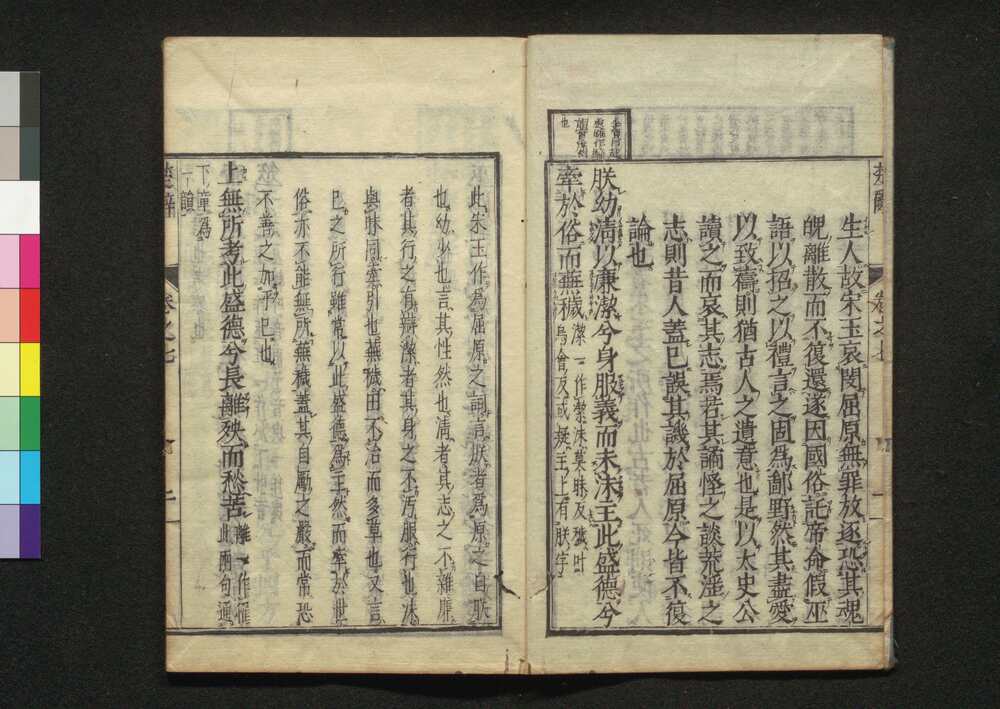 生人故宋玉哀閔屈原無罪放逐恐其魂
魄離散而不復還遂因國俗託帝命假巫
語以招之以禮言之固爲鄙野然其盡愛
以致禱則猶古人之遺意也是以太史公
讀之而哀其志焉若其譎怪之談荒淫之
志則昔人蓋已誤其譏於屈原今皆不復
論也
朕幼清以廉潔兮身服義而未沬主此盛德兮
牽於俗而蕪穢潔一作絜沬莫昧反穢叶
烏會反或疑主上有朕字
此宋玉作爲屈原之詞言朕者爲原之自朕
也幼少也言其性然也清者其志之不雜廉
者其行之有辯潔者其身之不汚服行也沬
與昧同牽引也蕪穢田不治而多草也又言
己之所行雖常以此盛德爲主然而牽於世
俗亦不能無所蕪穢蓋其自厲之嚴而常恐
不善之加乎己也
上無所考此盛德兮長離殃而愁苦離一作罹
此兩句通
下章爲
一韻
楚辭
卷之七
二